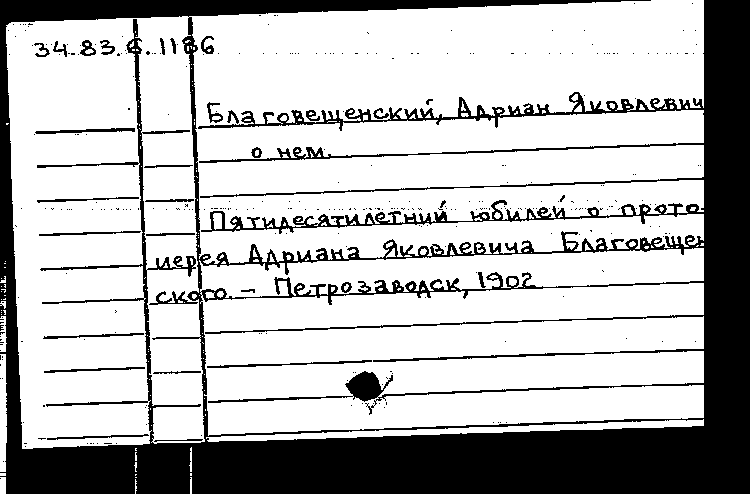 34.83.6.1186
Благовещенский, Адриан Яковлевич
о нем.
Пятидесятилетний юбилей о прото-
иерея Адриана Яковлевича Благовещен
ского. – Петрозаводск, 1902